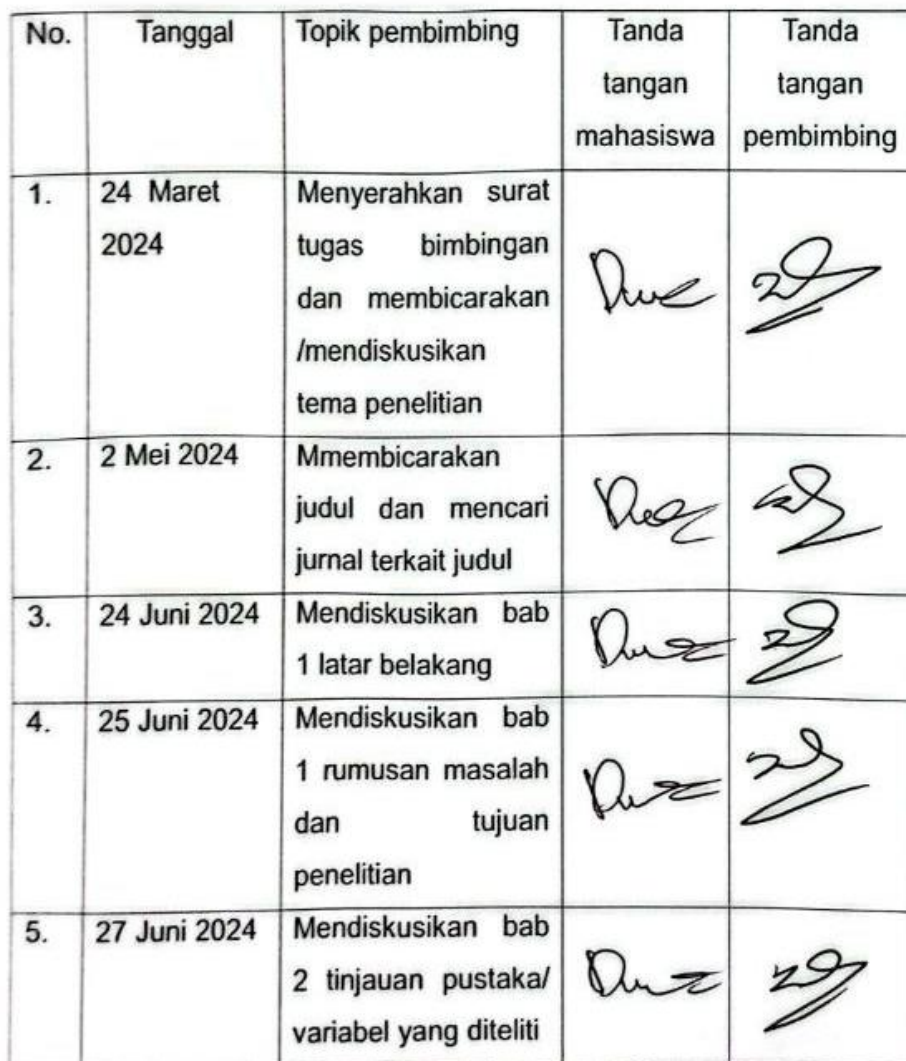 No. Tanggal Topik pembimbing Tanda Tanda
tangan tangan
mahasiswa pembimbing
1. 24 Maret Menyerahkan surat
2024 tugas bimbingan
dan membicarakan
/mendiskusikan
tema penelitian
2. 2 Mei 2024 Mmembicarakan
judul dan mencari
jurnal terkait judul
3. 24 Juni 2024 Mendiskusikan bab
1 latar belakang
4. 25 Juni 2024 Mendiskusikan bab
1 rumusan masalah
dan tujuan
penelitian
5. 27 Juni 2024 Mendiskusikan bab
2 tinjauan pustaka/
variabel yang diteliti